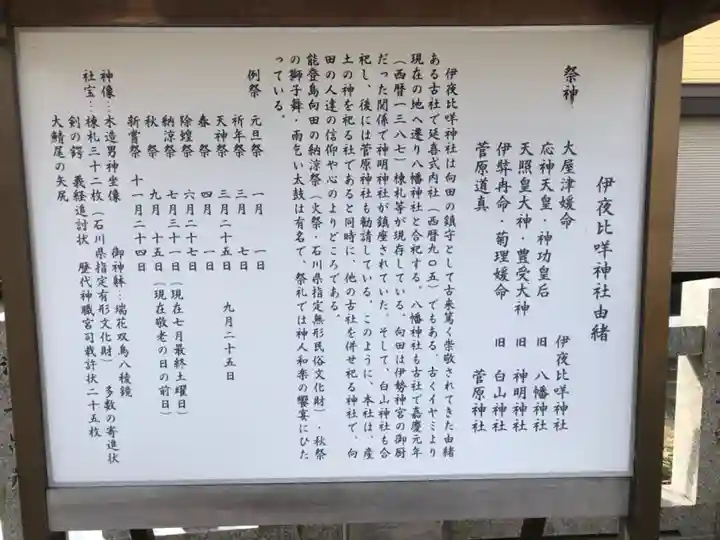 伊夜比咩神社由緒
祭神　大屋津媛命　伊夜比咩神社
応神天皇・神功皇后　旧　八幡神社
天照皇大神・豊受大神　旧　神明神社
伊弉冉命・菊理媛命　旧　白山神社
菅原道真　菅原神社
伊夜比咩神社は向田の鎮守として古来篤く崇敬されてきた由緒
ある古社で延喜式内社（西暦九〇五）でもある。古くイヤミより
現在の地へ遷り八幡神社と合祀する。八幡神社も古社で嘉慶元年
（西暦一三八七）棟札等が現存している。向田は伊勢神宮の御厨
だった関係で神明神社が鎮座されていた。そして、白山神社も合
祀し、後には菅原神社も勧請している。このように、本社は、産
土の神を祀る社であると同時に、他の古社を併せ祀る神社で、向
田の人達の信仰や心のよりどころである。
能登島向田の納涼祭（火祭・石川県指定無形民俗文化財）・秋祭
の獅子舞・雨乞い太鼓は有名で、祭礼では神人和楽の饗宴にひた
っている。
例祭　元旦祭　一月　一日
祈年祭　三月　七日
天神祭　三月二十五日　九月二十五日
春祭　四月　一日
除蝗祭　六月二十七日
納涼祭　七月三十一日（現在七月最終土曜日）
秋祭　九月　十五日（現在敬老の日の前日）
新嘗祭　十一月二十四日
神像…木造男神坐像　御神躰…瑞花双鳥八稜鏡
社宝…棟札三十二枚（石川県指定有形文化財）　多数の寄進状
剣の鍔　義経追討状　歴代神職宮司裁許状二十五枚
大鯖尾の矢尻